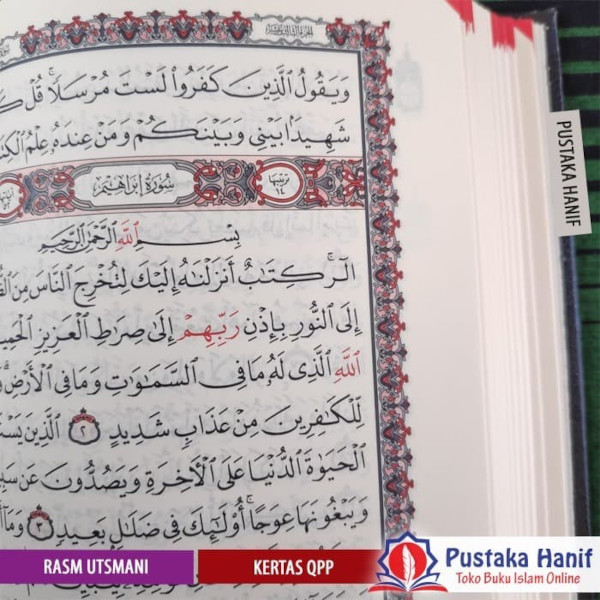 وَيَقُولُ الَّذِينَ كَفَرُوا لَسْتَ مُرْسَلًا ۚ قُلْ
شَهِيدًا بَيْنِي وَبَيْنَكُمْ وَمَنْ عِندَهُ عِلْمُ
سُورَةُ إِبْرَاهِيم
بِسْمِ اللَّهِ الرَّحْمَٰنِ الرَّحِيمِ
الٓر ۚ كِتَابٌ أَنزَلْنَاهُ إِلَيْكَ لِتُخْرِجَ النَّاسَ مِنَ
إِلَى النُّورِ بِإِذْنِ رَبِّهِمْ إِلَىٰ صِرَاطِ الْعَزِيزِ
اللَّهِ الَّذِي لَهُ مَا فِي السَّمَاوَاتِ وَمَا فِي الْأَرْضِ
لِّلْكَافِرِينَ مِنْ عَذَابٍ شَدِيدٍ ٢ الَّذِينَ
الْحَيَاةَ الدُّنْيَا عَلَى الْآخِرَةِ وَيَصُدُّونَ عَن
وَيَبْغُونَهَا عِوَجًا ۚ أُولَٰئِكَ فِي ضَلَالٍ بَعِيدٍ ٣
PUSTAKA HANIF
RASM UTSMANI
KERTAS QPP
Pustaka Hanif
Toko Buku Islam Online